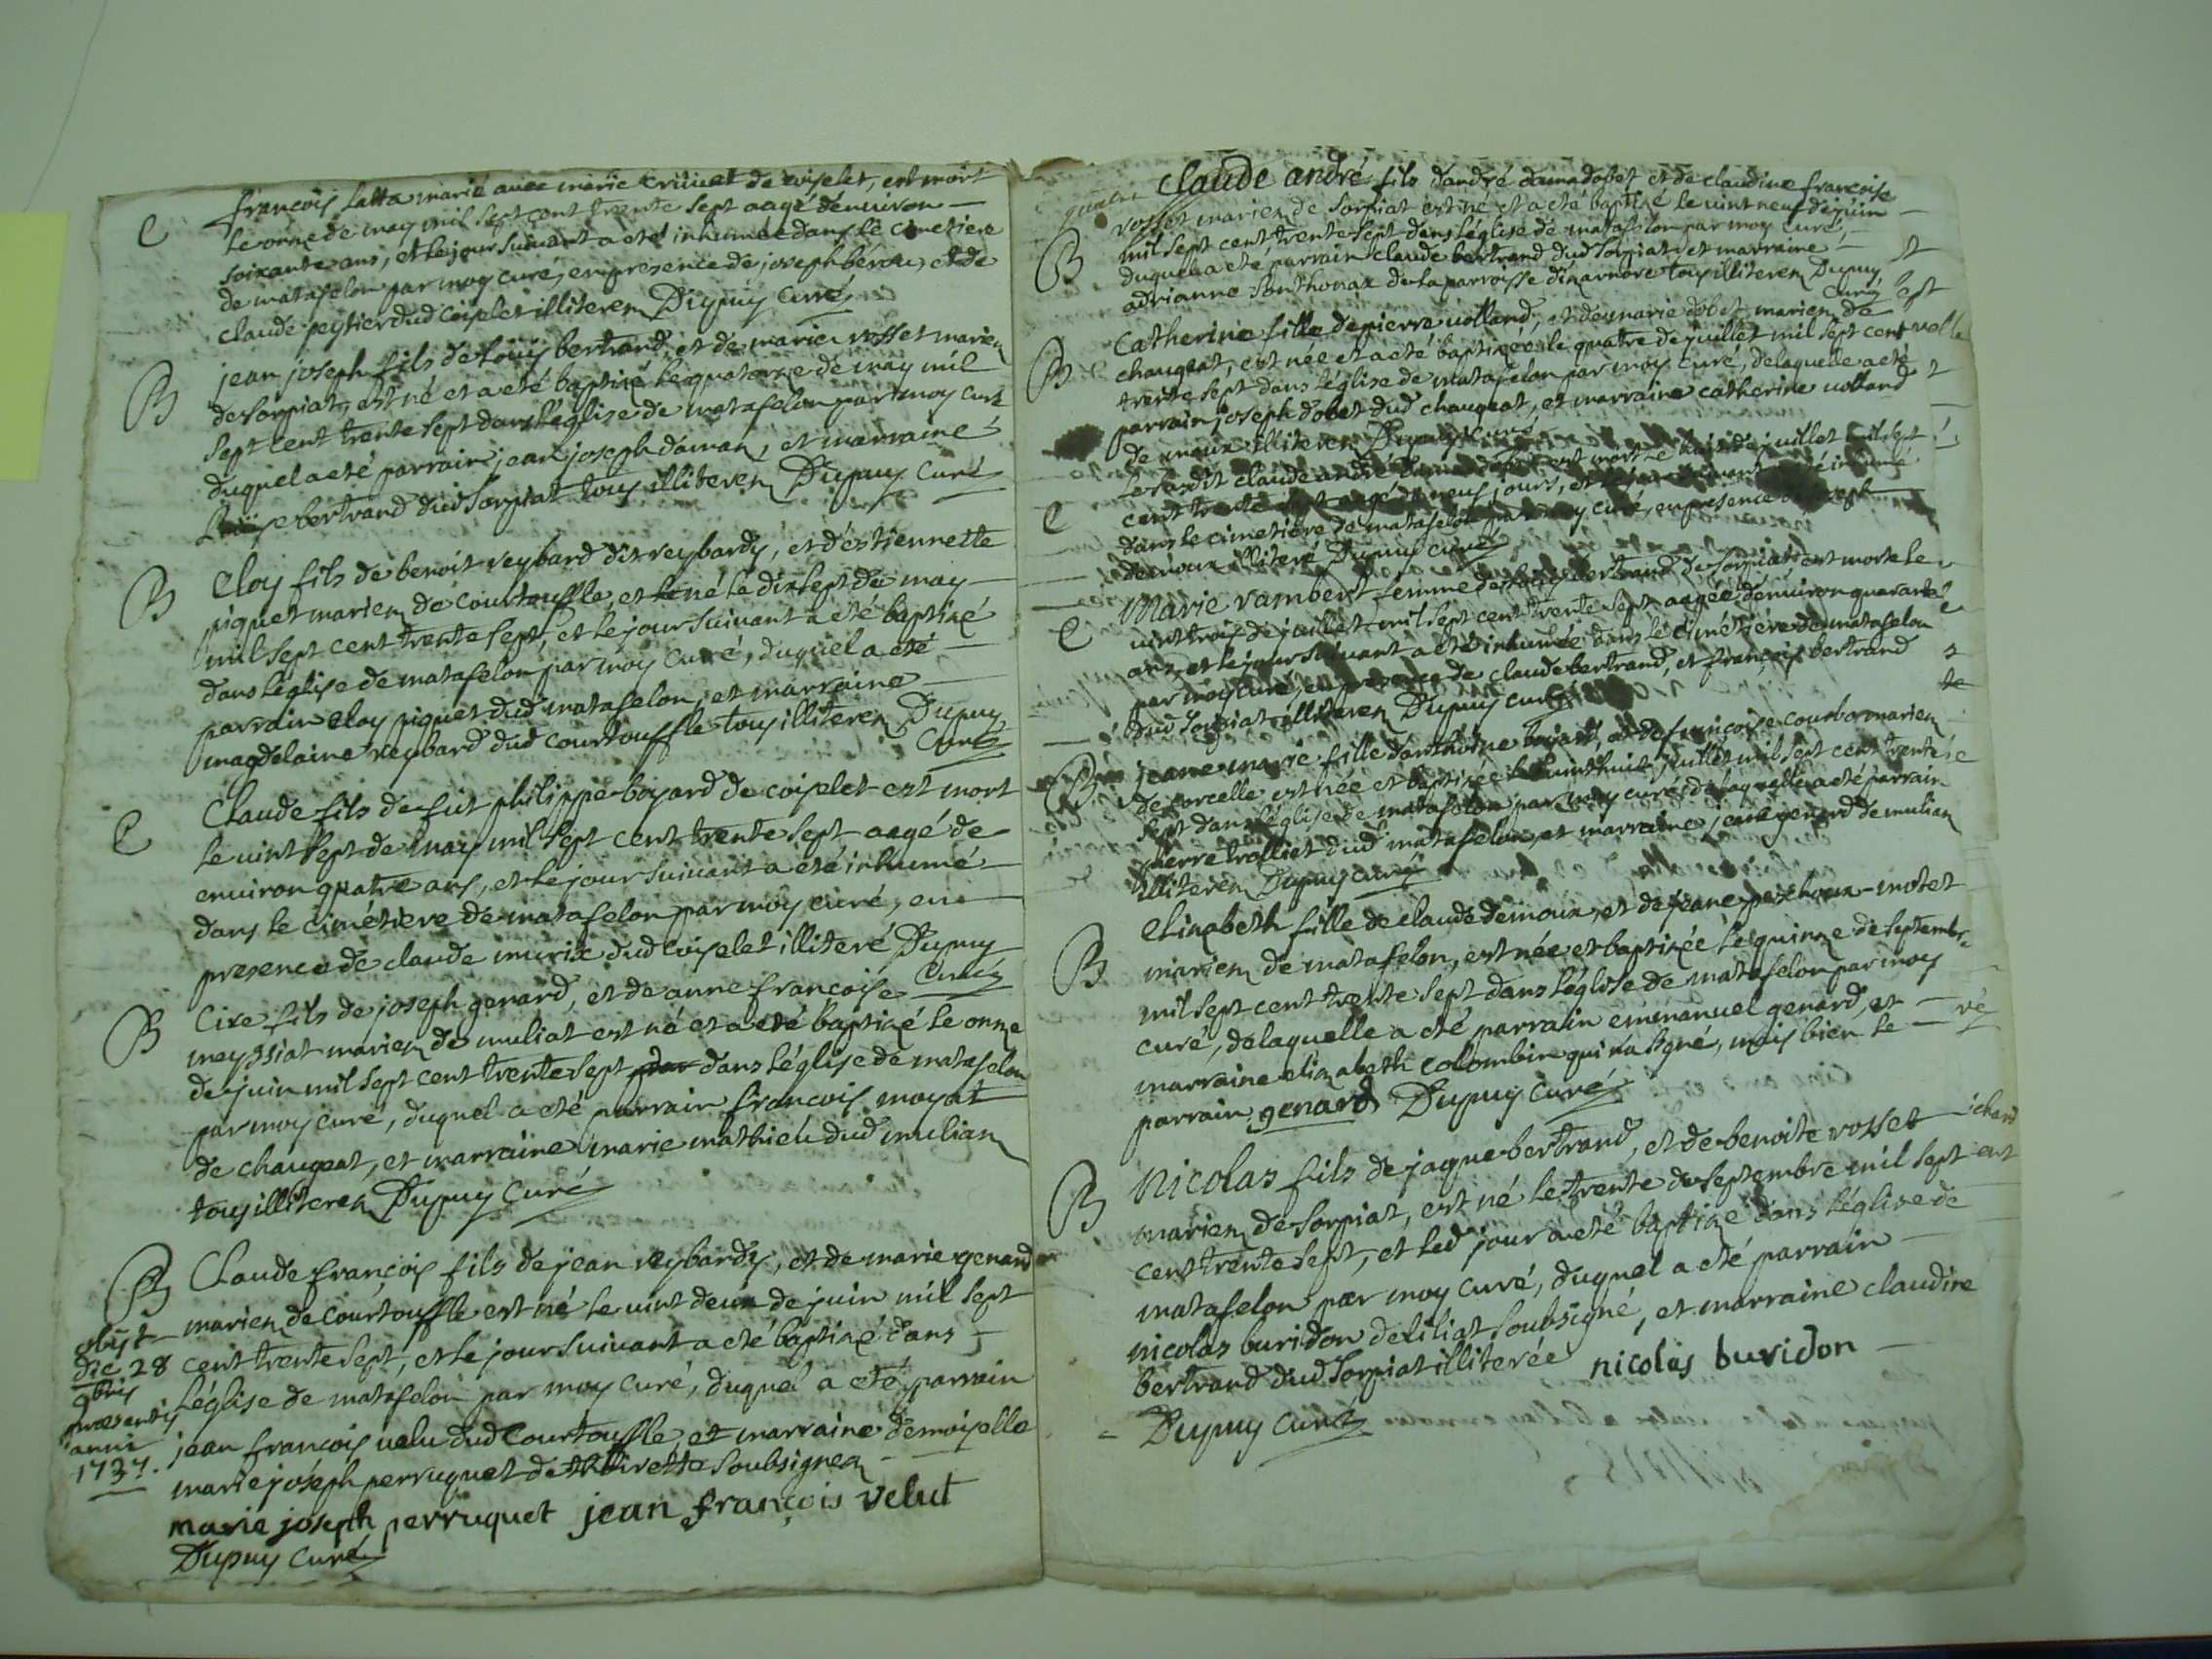 C
françois latta marié avec marie de coiselet, est mort
le onze de may mil sept cent trente sept aagé denuiron
soixante ans, et le jour suivant a eté inhumé dans le cimetiere
de matafelon par moy curé, en presence de joseph et de
claude peysier dud coiselet illiteren Dupuy curé
B
jean joseph fils de Louys bertrand, et de marie rosset marien
de sorpiat, est né et a eté baptizé le quatorze de may mil
sept cent trente sept dans l'église de matafelon par moy curé
duquel a eté parrain jean joseph daman, et marraine
bertrand dud sorpiat tous illiteren Dupuy curé
B
Eloy fils de benoit reybard dit reybardy, et d'estiennette
piquet marien de courtouffle, et né le dix sept de may
mil sept cent trente sept, et le jour suivant a eté baptizé
dans l'église de matafelon par moy curé, duquel a eté
parrain eloy piquet dud matafelon, et marraine
magdelaine reybard dud courtouffle tous illiteren Dupuy
curé
C
Claude fils de fut philippe boyard de coiselet est mort
le uint sept de may mil sept cent trente sept aagé de
environ quatre ans, et le jour suivant a eté inhumé
dans le cimétiere de matafelon par moy curé, en
presence de claude murix dud coiselet illiteré Dupuy
curé
B
Cire fils de joseph genard, et de anne françoise
meyssiat marien de muliat est né et a eté baptizé le onze
de juin mil sept cent trente sept dans l'église de matafelon
par moy curé, duquel a eté parrain françois moyat
de chaugeat, et marraine marie mathieu dud mulian
tous illiteren Dupuy curé
B
Claude françois fils de jean reybardy, et de marie genard
marien de courtouffle est né le uint deux de juin mil sept
cent trente sept, et le jour suivant a eté baptizé dans
l'église de matafelon par moy curé, duquel a eté parrain
jean françois velu dud courtouffle, et marraine demoiselle
marie joseph perruquet de soubsignen
obijt
die 28
9bris
præsentis
anni
1737.
marie joseph perruquet jean françois velut
Dupuy curé
Claude andré fils d'andré damadobet et de claudine françoise
rosset marien de sorpiat est né et a eté baptizé le uint neuf de juin
B
mil sept cent trente sept dans l'église de matafelon par moy curé,
duquel a eté parrain claude bertrand dud sorpiat, et marraine
adrianne sonthonax de la parroisse d'izarnore tous illiteren Dupuy
curé
B
Catherine fille de pierre uolland, et de marie dobet marien de
chaugeat, est née et a eté baptizée le quatre de juillet mil sept cent
trente sept dans l'église de matafelon par moy curé, de laquelle a eté
parrain joseph dobet dud chaugeat, et marraine catherine uolland
de illiteren Dupuy curé
C
le susdit claude andré est mort le huit de juillet mil sept
cent trente sept aagé de neuf jours, et le jour suivant a eté inhumé
dans le cimetiere de matafelon par moy curé, en presence de joseph
demoux illiteré Dupuy curé
C
Marie rambert femme de bertrand de sorpiat est morte le
uint trois de juillet mil sept cent trente sept aagée denuiron quarante
ans, et le jour suivant a eté inhumée dans le cimétiere de matafelon
par moy curé, en presence de claude bertrand, et françois bertrand
dud sorpiat illiteren Dupuy curé
B
jeane marie fille d'anthoine et de françoise courbo marien
de corcelle est née et baptizée le uint huit juillet mil sept cent trente
sept dans l'église de matafelon par moy curé, de laquelle a eté parrain
pierre trolliet dud matafelon, et marraine jeane genard de mulian
illiteren Dupuy curé
B
Elizabeth fille de claude demoux, et de jeane motet
marien de matafelon, est née et baptizée le quinze de septembre
mil sept cent trente sept dans l'église de matafelon par moy
curé, de laquelle a eté parrain emmanuel genard, et
marraine elizabeth colombin qui na signé, mais bien le
parrain genard Dupuy curé
B
Nicolas fils de jaque bertrand, et de benoite rosset
marien de sorpiat, est né le trente de septembre mil sept
cent trente sept, et led jour a eté baptizé dans l'église de
matafelon par moy curé, duquel a eté parrain
nicolas buridon de liliat soubsigné, et marraine claudine
bertrand dud sorpiat illiterée nicolas buridon
Dupuy curé